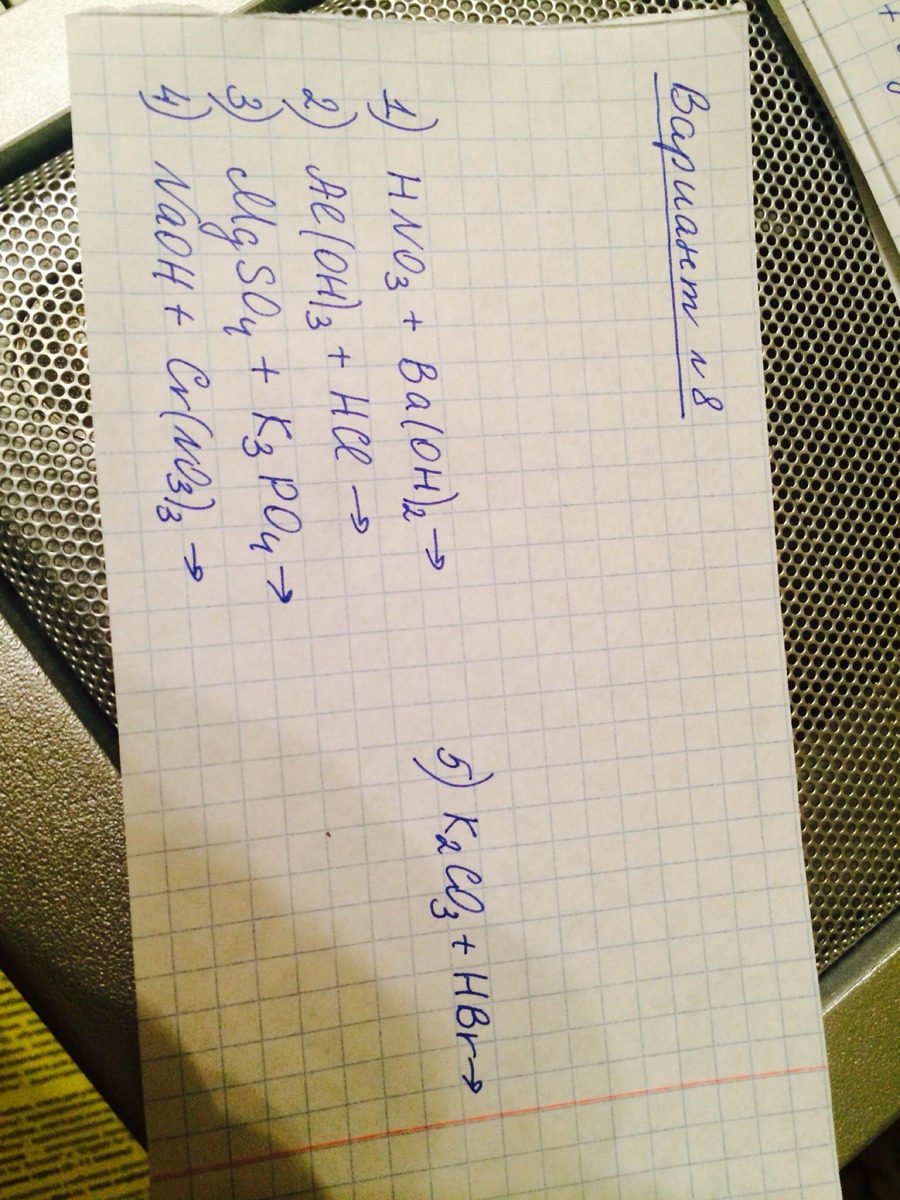 Вариант №8
1) HNO₃ + Ba(OH)₂ →
2) Al(OH)₃ + HCl →
3) MgSO₄ + K₃PO₄ →
4) NaOH + Cr(NO₃)₃ →
5) K₂CO₃ + HBr →